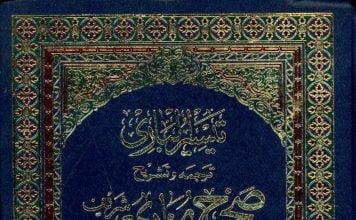 تیسیر الباری
ترجمہ و تشریح
صحیح بخاری شریف